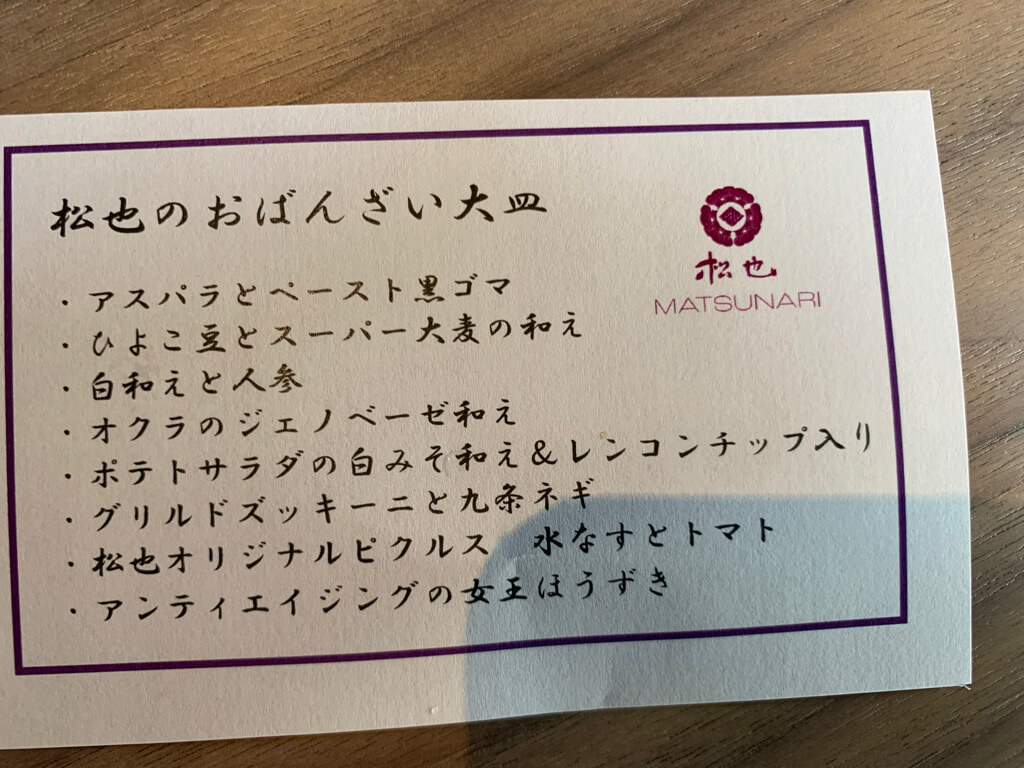 松也のおばんざい大皿
松也
MATSUNARI
・アスパラとペースト黒ゴマ
・ひよこ豆とスーパー大麦の和え
・白和えと人参
・オクラのジェノベーゼ和え
・ポテトサラダの白みそ和え&レンコンチップ入り
・グリルドズッキーニと九条ネギ
・松也オリジナルピクルス　水なすとトマト
・アンティエイジングの女王ほうずき